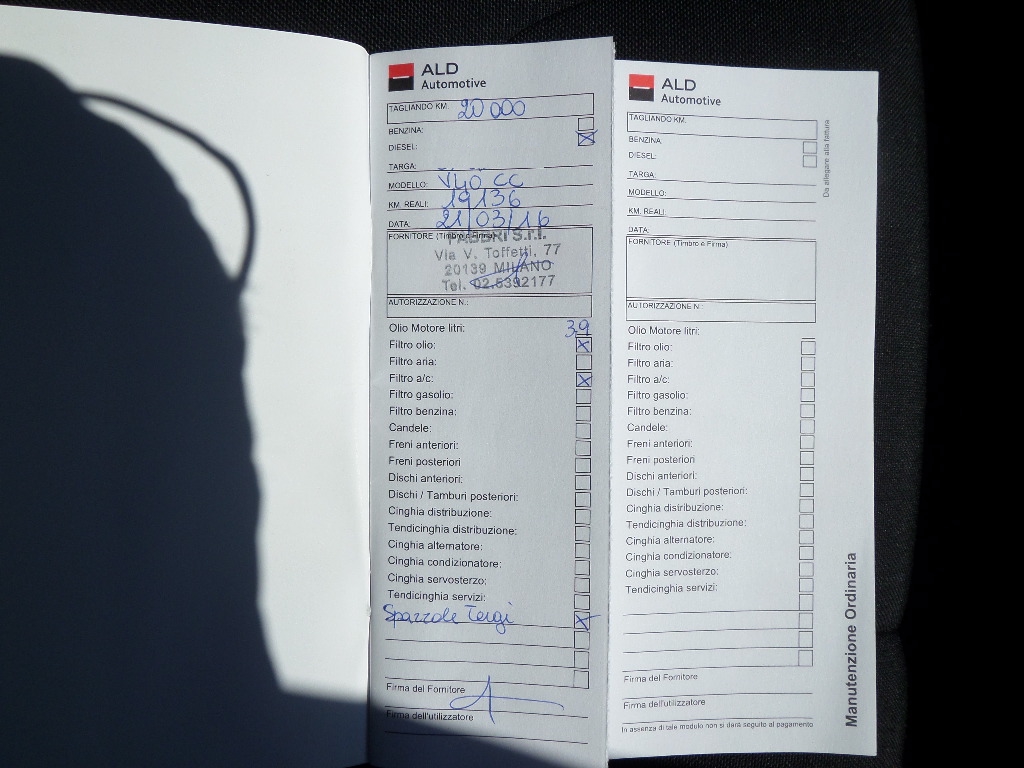 ALD
Automotive
TAGLIANDO KM. 20 000
BENZINA:
DIESEL:
TARGA:
MODELLO: V40 CC
KM. REALI: 19136
DATA: 21/03/16
FORNITORE (Timbro e Firma)
FABBRI S.r.l.
Via V. Toffetti, 77
20139 MILANO
Tel. 02.5392177
AUTORIZZAZIONE N.:
Olio Motore litri: 3.9
Filtro olio:
Filtro aria:
Filtro a/c:
Filtro gasolio:
Filtro benzina:
Candele:
Freni anteriori:
Freni posteriori
Dischi anteriori:
Dischi / Tamburi posteriori:
Cinghia distribuzione:
Tendicinghia distribuzione:
Cinghia alternatore:
Cinghia condizionatore:
Cinghia servosterzo:
Tendicinghia servizi:
Spazzole Tergi
Firma del Fornitore
Firma dell'utilizzatore
ALD
Automotive
TAGLIANDO KM.
BENZINA:
DIESEL:
TARGA:
MODELLO:
KM. REALI:
DATA:
FORNITORE (Timbro e Firma)
AUTORIZZAZIONE N.:
Olio Motore litri:
Filtro olio:
Filtro aria:
Filtro a/c:
Filtro gasolio:
Filtro benzina:
Candele:
Freni anteriori:
Freni posteriori
Dischi anteriori:
Dischi / Tamburi posteriori:
Cinghia distribuzione:
Tendicinghia distribuzione:
Cinghia alternatore:
Cinghia condizionatore:
Cinghia servosterzo:
Tendicinghia servizi:
Firma del Fornitore
Firma dell'utilizzatore
In assenza di tale modulo non si darà seguito al pagamento
Da allegare alla fattura
Manutenzione Ordinaria